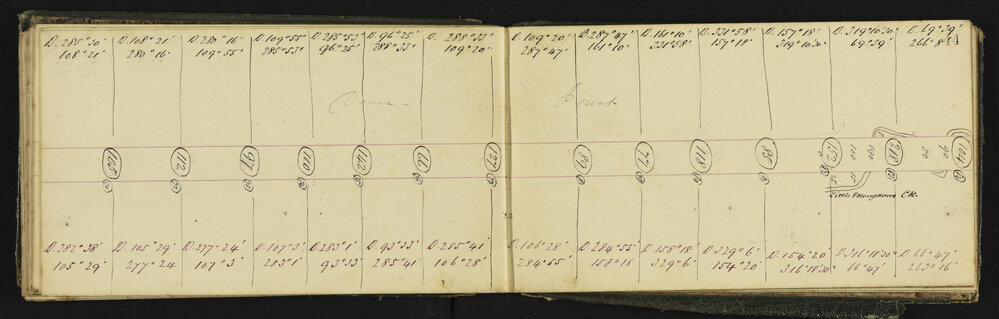 D. 285°30' D. 108°21' D. 280°16' D. 109°55' D. 285°53' D. 96°25' D. 288°33' D. 109°20' D. 287°47' D. 161°10' D. 331°58' D. 157°18' D. 319°10'30" D. 69°39'
108°21' 280°16' 109°55' 285°53' 96°25' 288°33' 109°20' 287°47' 161°10' 331°58' 157°18' 319°10'30" 69°39' 266°8'
Dense Forest
112 97 110 142 66 127 89 77 118 85 152 218 104
100 190 50 90
Little Mongarlowe CK.
D. 282°38' D. 105°29' D. 277°24' D. 107°3' D. 283°1' D. 93°33' D. 285°41' D. 106°28' D. 284°55' D. 158°18' D. 329°6' D. 154°20' D. 316°18'30" D. 66°47'
105°29' 277°24 107°3' 283°1' 93°33' 285°41' 106°28' 284°55' 158°18' 329°6' 154°20' 316°18'30" 66°47' 263°16'